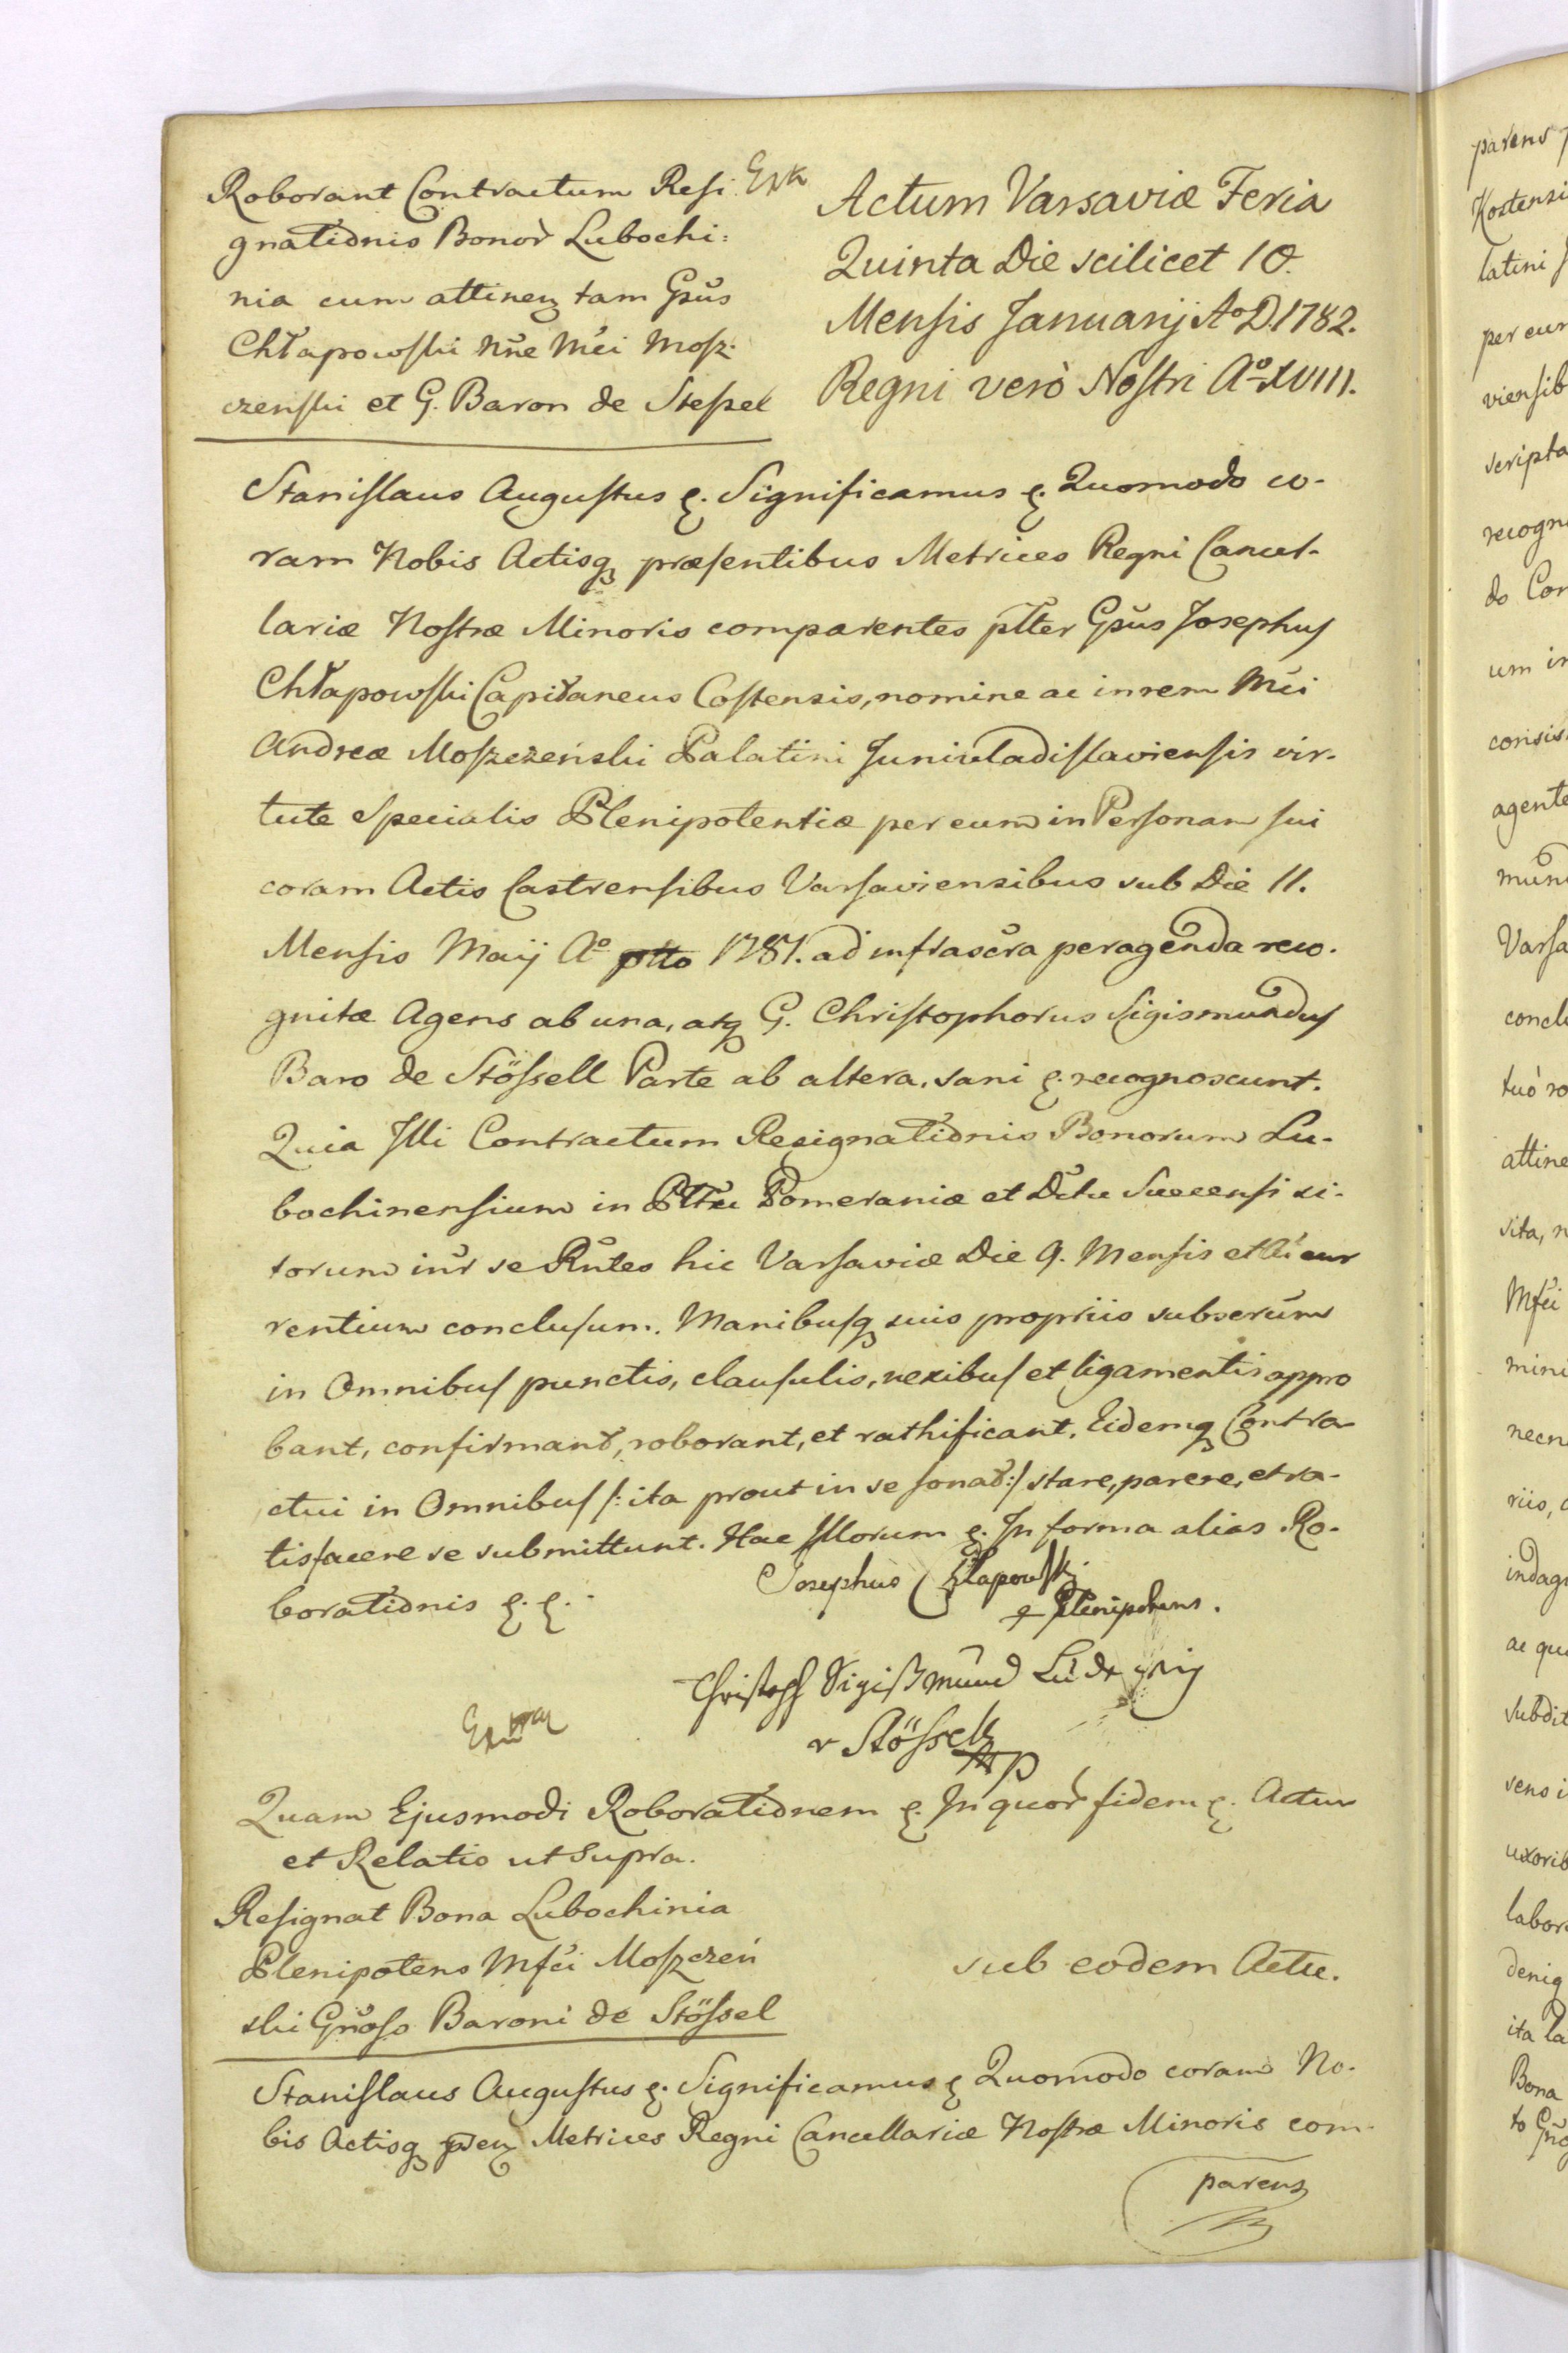 Roborant Contractum Resi
gnatiõnis Bonor̃ Lubochi:
nia cum attineñ tam Gsũs
Chłapowski nñe Mĩci Mosz-
czenski et G. Baron de Stessel
Actum Varsaviæ Feria
Quinta Die scilicet 10.
Mensis Januarij Aº D. 1782.
Regni verò Nostri Aº XVIII.
Stanislaus Augustus &. Significamus &. Quomodo co-
ram Nobis Actisq̃ præsentibus Metrices Regni Cancel-
lariæ Nostræ Minoris comparentes pltter Gsũs Josephus
Chłapowski Capitaneus Costensis, nomine ac in rem Mĩci
Andreæ Moszczeński Palatini Juniuladislaviensis vir-
tute specialis Plenipotentiæ per eum in Personam sui
coram Actis Castrensibus Varsaviensibus sub Die 11.
Mensis Maij Aº 1781. ad infrascr̃a peragenda reco-
gnitæ Agens ab una, atq̃ G. Christophorus Sigismundus
Baro de Stössell Parte ab altera, sani &. recognoscunt.
Quia Illi Contractum Resignatiõnis Bonorum Lu-
bochinensium in Plttu Pomeraniæ et Dc̃tu Suecensi si-
torum int̃r se Rñtes hic Varsaviæ Die 9. Mensis et Ai cur
rentium conclusum. Manibusq̃ suis propriis subscr̃um
in Omnibus punctis, clausulis, nexibus et ligamentis appro
bant, confirmant, roborant, et rathificant. Eidemq̃ Contra
ctui in Omnibus /: ita prout in se sonat :/ stare, parere, et sa-
tisfacere se submittunt. Hac Illorum &. In forma alias Ro-
boratiõnis &. &.
Josephus Chłapowski
Plenipotens.
Christoph Sigißmund Ludewig
v Stössell
Quam Ejusmodi Roboratiõnem &. In quor̃ fidem &. Actum
et Relatio ut Supra.
Resignat Bona Lubochinia
Plenipotens Mfci Moszczeń
ski Gñoso Baroni de Stössel
sub eodem Actu.
Stanislaus Augustus &. Significamus & Quomodo coram No-
bis Actisq̃ pñeñ Metrices Regni Cancellariæ Nostræ Minoris com-
parens